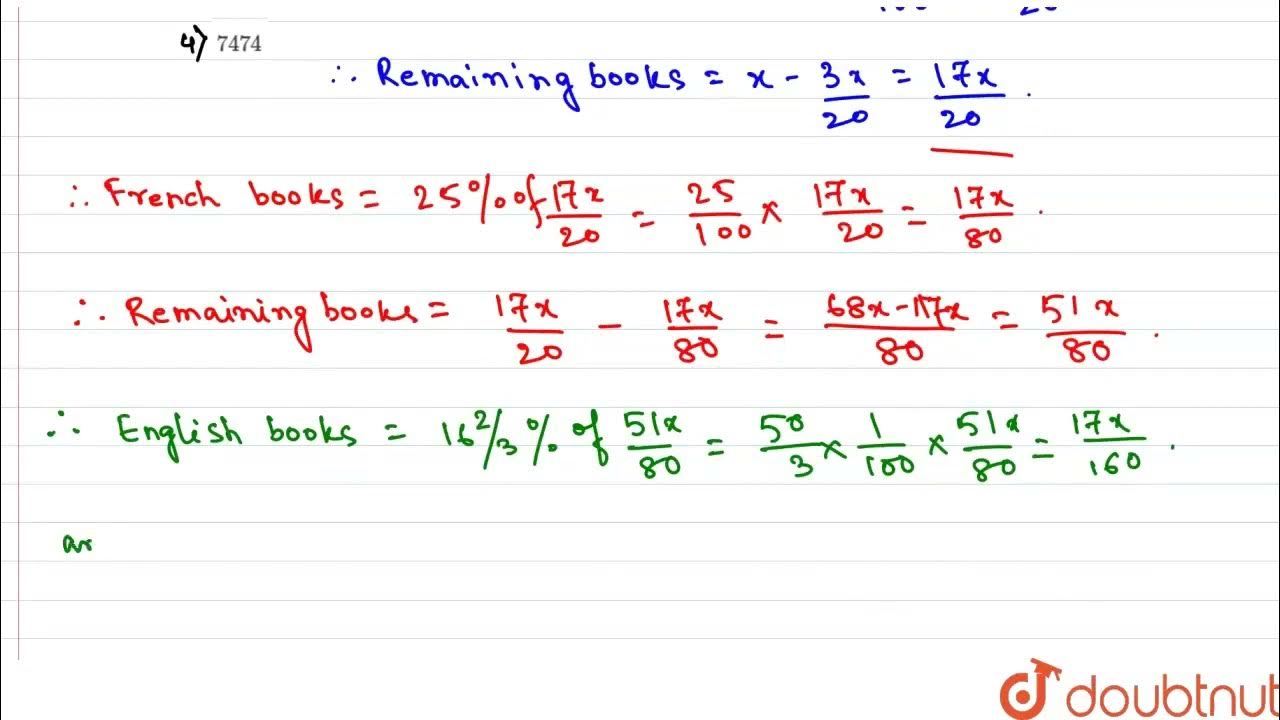 100 20
4) 7474
∴ Remaining books = x - 3x/20 = 17x/20 .
∴ French books = 25% of 17x/20 = 25/100 × 17x/20 = 17x/80 .
∴ Remaining books = 17x/20 - 17x/80 = 68x-17x/80 = 51x/80 .
∴ English books = 16 2/3 % of 51x/80 = 50/3 × 1/100 × 51x/80 = 17x/160 .
as
doubtnut